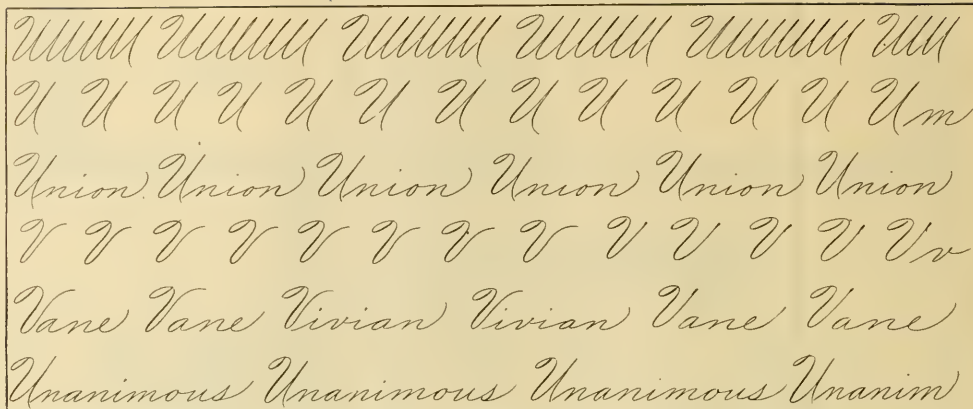 U U U U U U U U U U U U Um
Union Union Union Union Union Union
V V V V V V V V V V V V Vv
Vane Vane Vivian Vivian Vane Vane
Unanimous Unanimous Unanimous Unanim